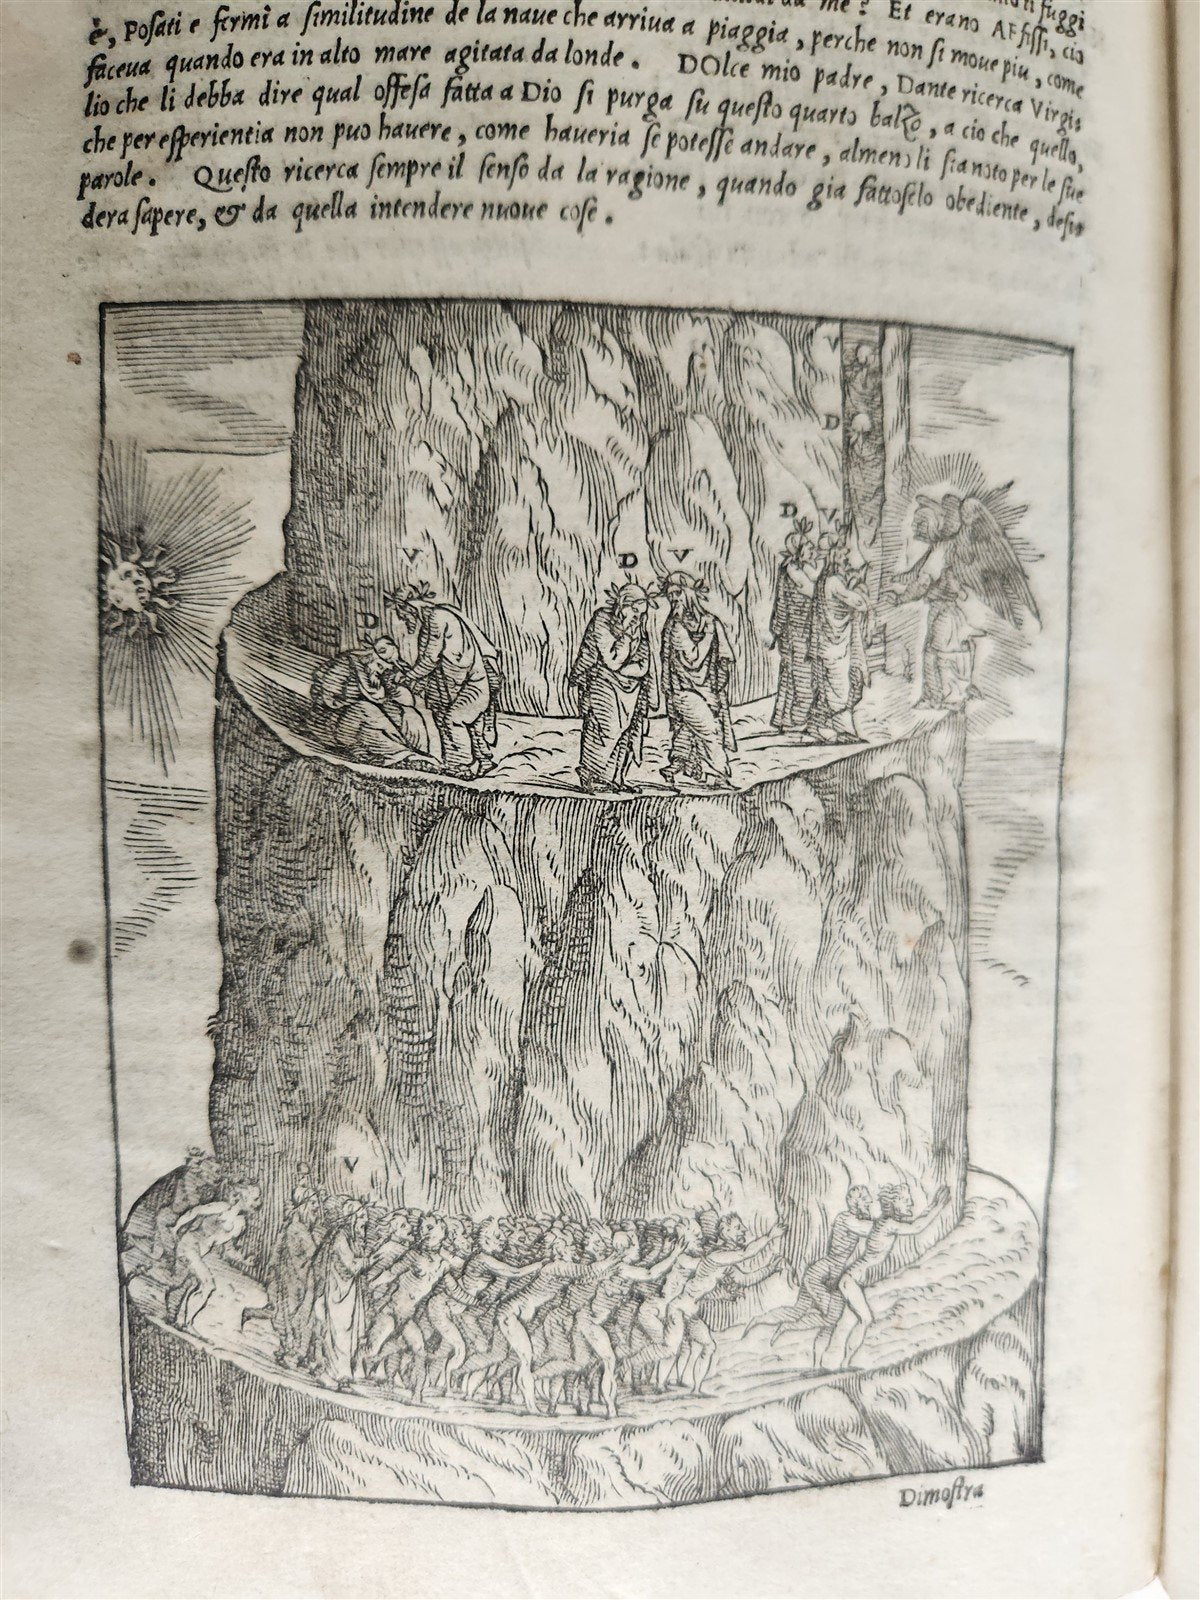 da me? Et erano AFfissi, cio
è, Posati e fermi a similitudine de la naue che arriua a piaggia, perche non si moue piu, come
faceua quando era in alto mare agitata da londe. DOlce mio padre, Dante ricerca Virgi⸗
lio che li debba dire qual offesa fatta a Dio si purga su questo quarto balzo, a cio che quello,
che per esperientia non puo hauere, come haueria se potesse andare, almeno li sia noto per le sue
parole. Questo ricerca sempre il senso da la ragione, quando gia fattoselo obediente, desi⸗
dera sapere, & da quella intendere nuoue cose.
V
D
D V
V D V
D
D V
Dimostra